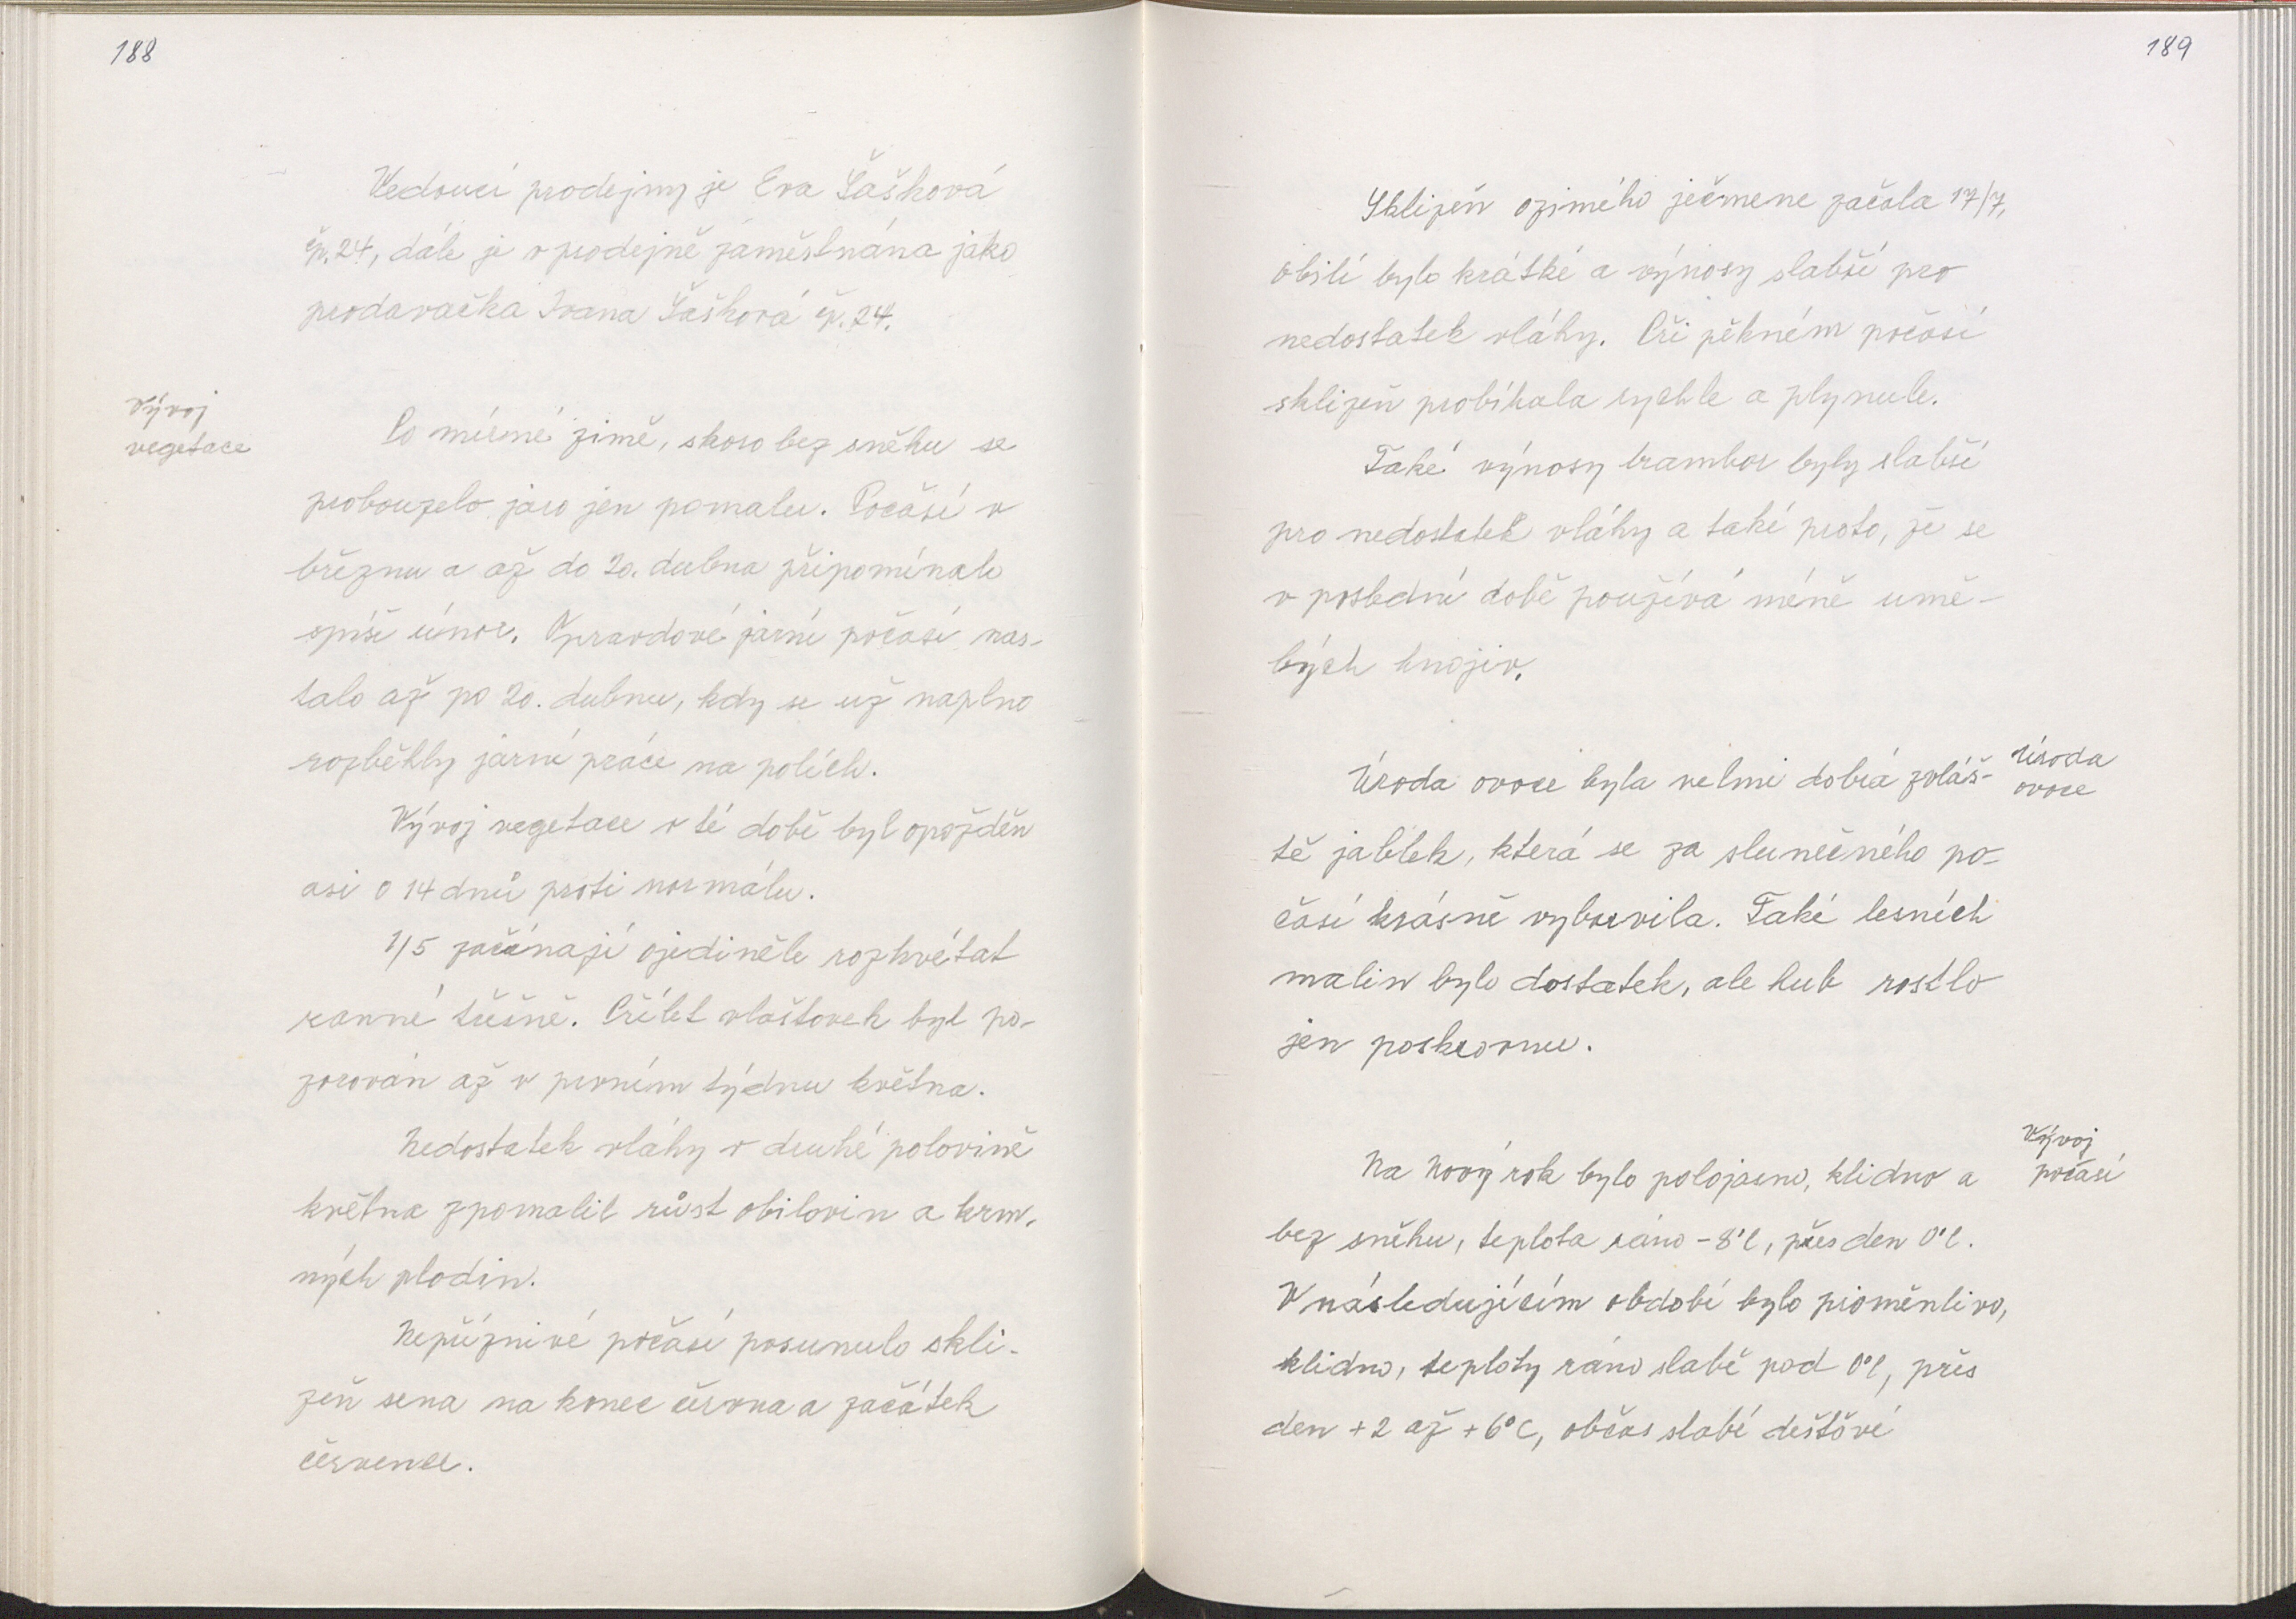 188
Vedoucí prodejny je Eva Šašková
čp. 24, dále je v prodejně zaměstnána jako
prodavačka Ivana Šašková čp. 24.
Vývoj
vegetace
Po mírné zimě, skoro bez sněhu se
probouzelo jaro jen pomalu. Počasí v
březnu a až do 20. dubna připomínalo
spíše únor. Opravdové jarní počasí nas-
talo až po 20. dubnu, kdy se už naplno
rozběhly jarní práce na polích.
Vývoj vegetace v té době byl opožděn
asi o 14 dnů proti normálu.
1/5 začínají ojediněle rozkvétat
ranné třešně. Přílet vlaštovek byl po-
zorován až v prvním týdnu května.
Nedostatek vláhy v druhé polovině
května zpomalil růst obilovin a krm-
ných plodin.
Nepříznivé počasí posunulo skli-
zeň sena na konec června a začátek
července.
189
Sklizeň ozimého ječmene začala 17/7,
obilí bylo krátké a výnosy slabší pro
nedostatek vláhy. Při pěkném počasí
sklizeň probíhala rychle a plynule.
Také výnosy brambor byly slabší
pro nedostatek vláhy a také proto, že se
v poslední době používá méně umě-
lých hnojiv.
Úroda ovoce byla velmi dobrá zvláš-
tě jablek, která se za slunečného po-
časí krásně vybarvila. Také lesních
malin bylo dostatek, ale hub rostlo
jen poskrovnu.
Úroda
ovoce
Na Nový rok bylo polojasno, klidno a
bez sněhu, teplota ráno -8°C, přes den 0°C.
V následujícím období bylo proměnlivo,
klidno, teploty ráno slabě pod 0°C, přes
den +2 až +6°C, občas slabé dešťové
Vývoj
počasí